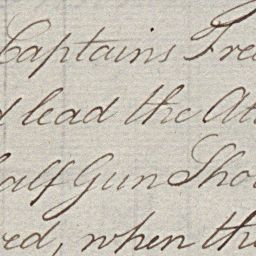 Captains Fre
d lead the At
half Gun Sho
red, when the